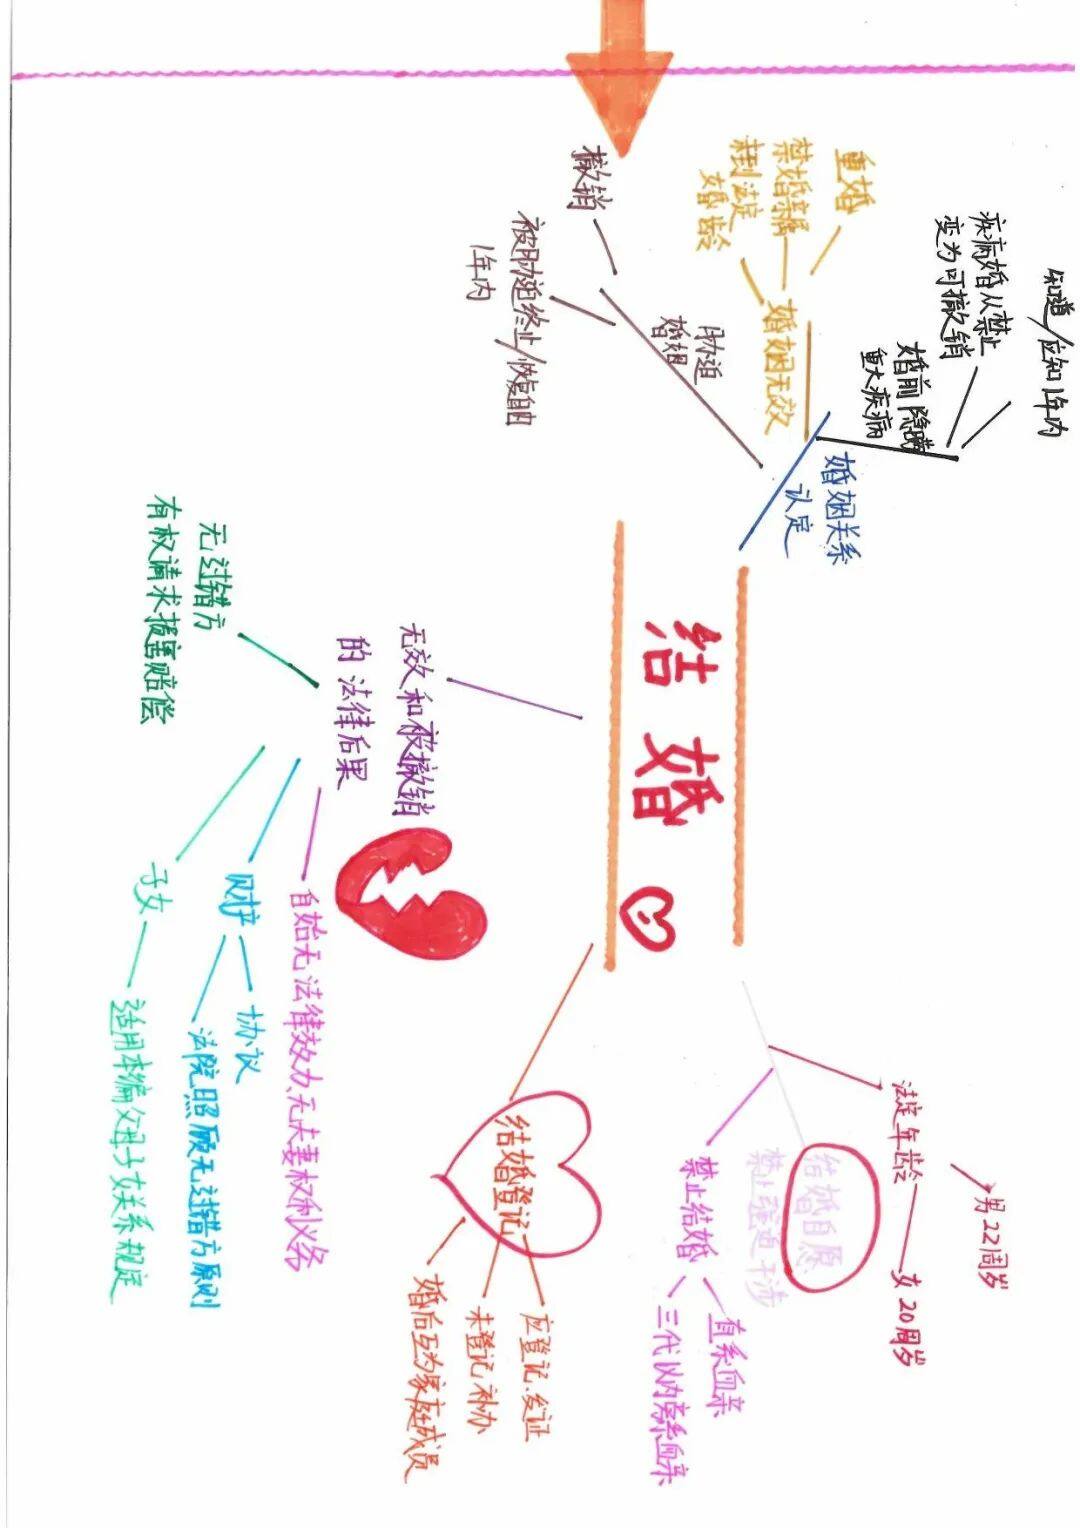 结婚
婚姻关系
认定
知道/应知1年内
疾病婚从禁止
变为可撤销
婚前隐瞒
重大疾病
婚姻无效
重婚
禁婚亲属
未到法定
婚龄
胁迫
婚姻
撤销
被胁迫终止/恢复自由
1年内
法定年龄
男22周岁
女20周岁
结婚自愿
禁止强迫干涉
禁止结婚
直系血亲
三代以内旁系血亲
结婚登记
应登记、发证
未登记补办
婚后互为家庭成员
无效和被撤销
的法律后果
无过错方
有权请求损害赔偿
自始无法律效力、无夫妻权利义务
财产
协议
法院照顾无过错方原则
子女
适用本编父母子女关系规定